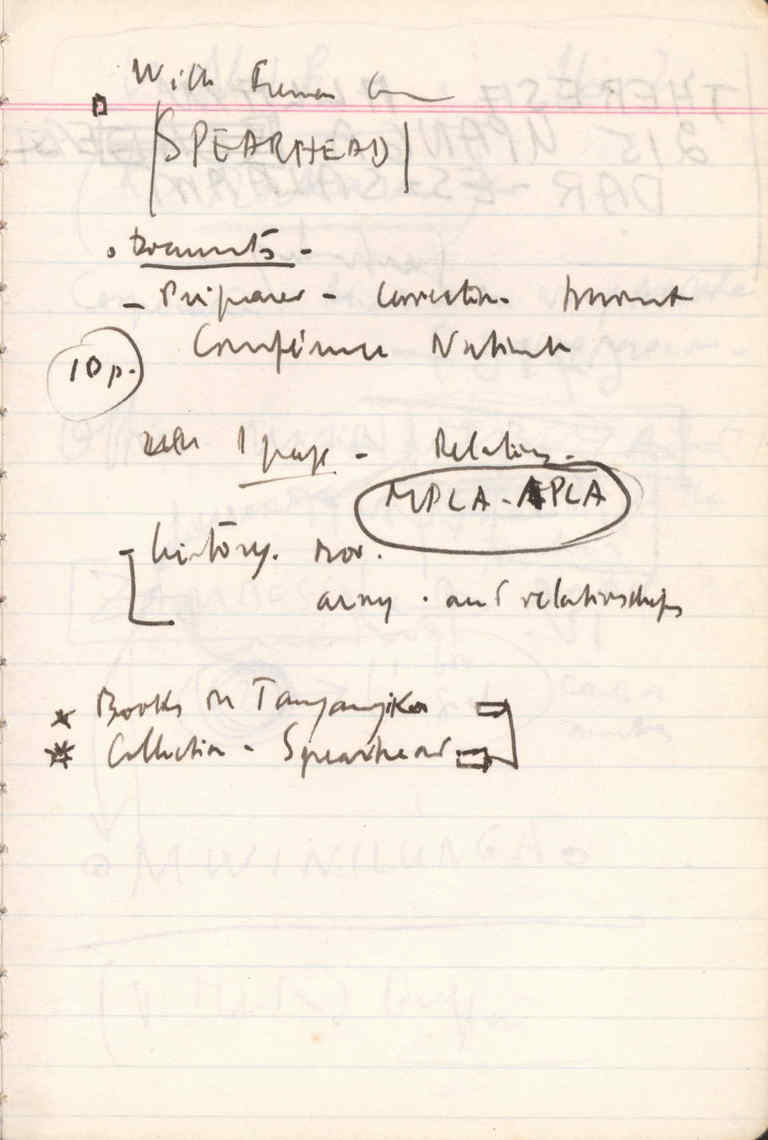 With
SPEARHEAD
Documents -
- Préparer - Correction
10 p.
Conférence Nationale
1 page - Relations
MPLA - APLA
history. mov.
army. and relationships
Books on Tanganyika
Collection - Spearhead